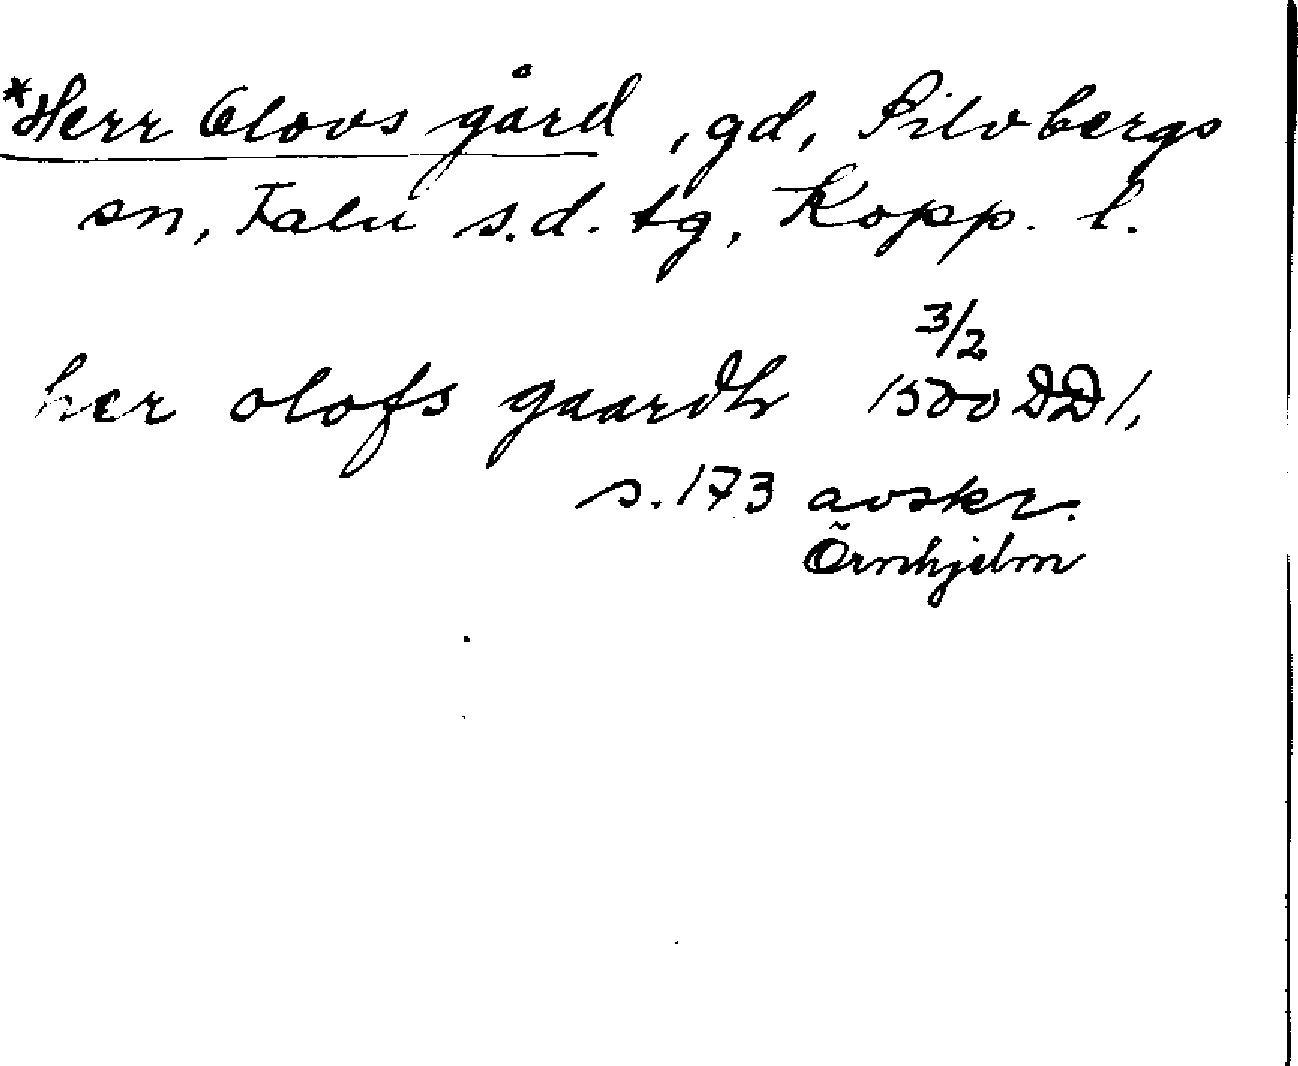 *Herr Olovs gård, gd, Silvbergs
sn, Falu s.d. tg, Kopp. l.
3/2
her olofs gaardh 1500 DD 1,
s. 173 avskr.
Örnhjelm